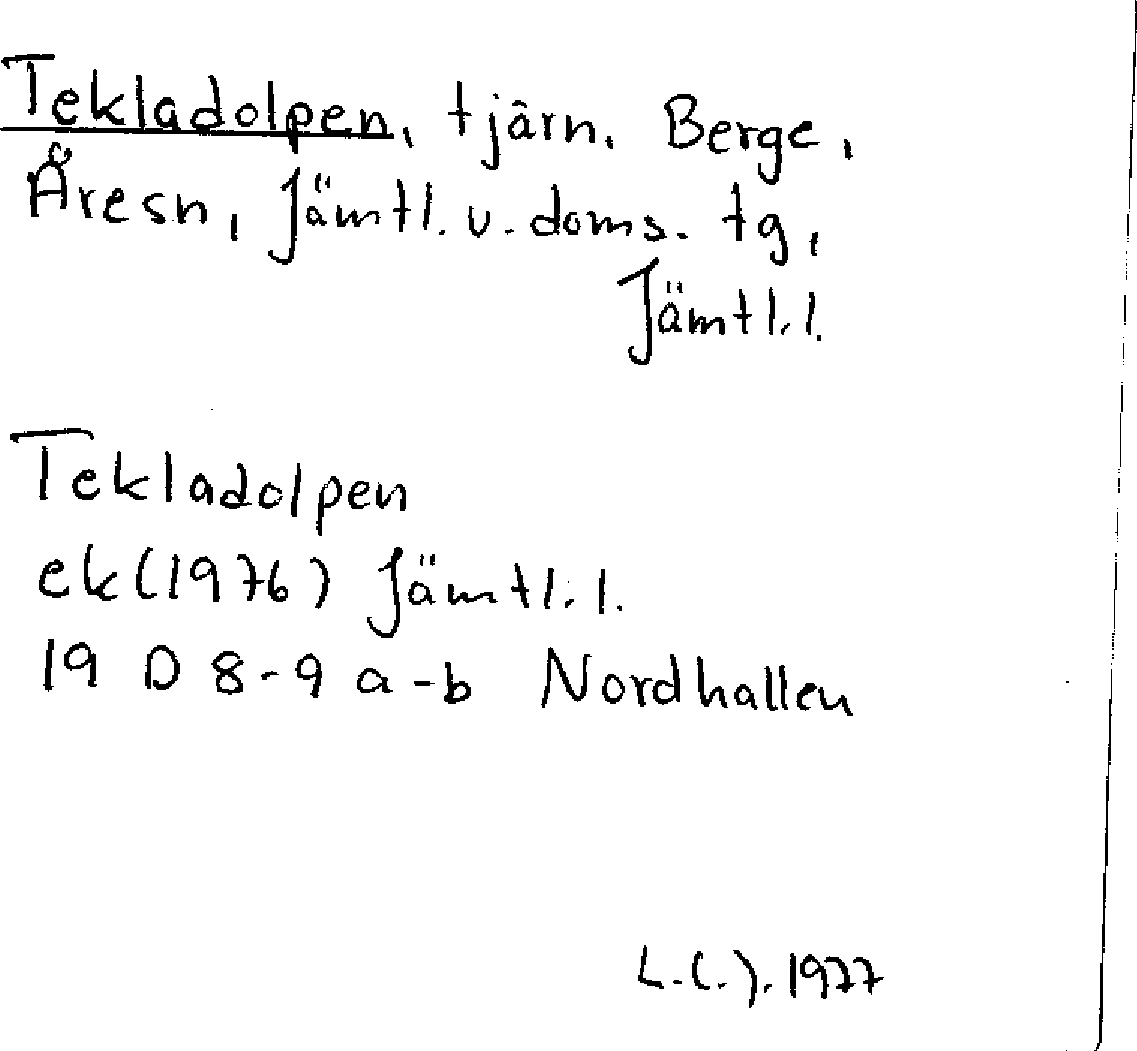 Tekladolpen, tjärn. Berge,
Åresn, Jämtl. v. doms. tg,
Jämtl. l.
Tekladolpen
ek (1976) Jämtl. l.
19 D 8-9 a-b Nordhallen
1977